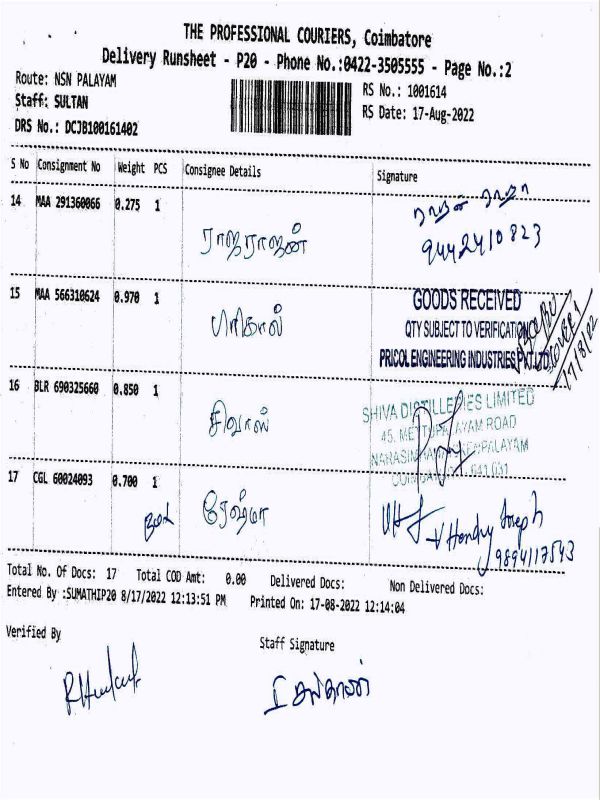 THE PROFESSIONAL COURIERS, Coimbatore
Delivery Runsheet - P20 - Phone No.:0422-3505555 - Page No.:2
Route: NSN PALAYAM
RS No.: 1001614
Staff: SULTAN
RS Date: 17-Aug-2022
DRS No.: DCJB100161402
S No Consignment No Weight PCS Consignee Details Signature
14 MAA 291360066 0.275 1 ராஜராஜன்
9442410823
15 MAA 566310624 0.970 1
GOODS RECEIVED
QTY SUBJECT TO VERIFICATION
PRICOL ENGINEERING INDUSTRIES PVT LTD
17/8/22
16 BLR 690325660 0.850 1
SHIVA DISTILLERIES LIMITED
45, METTUPALAYAM ROAD
NARASIMHANAICKENPALAYAM
COIMBATORE - 641 031
17 CGL 60024093 0.700 1 ரேஷ்மா
V Hendry Joseph
9894117543
Total No. Of Docs: 17 Total COD Amt: 0.00 Delivered Docs: Non Delivered Docs:
Entered By :SUMATHIP20 8/17/2022 12:13:51 PM Printed On: 17-08-2022 12:14:04
Verified By
Staff Signature